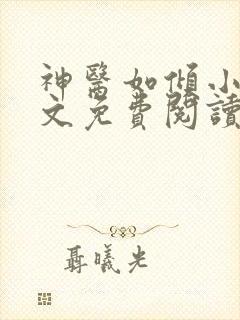 神醫如傾小
文免費閱讀
聶曦光